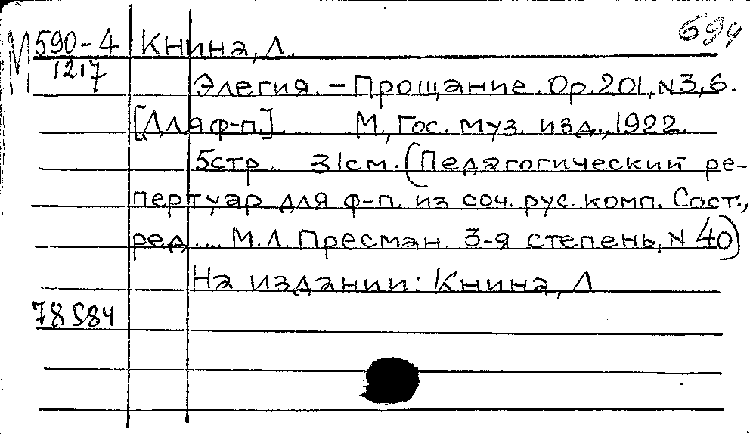 694
М 590-4 Книна, Л.
1217
Элегия. - Прощание. Ор.201, N3,6.
[Для ф-п.] М., Гос. муз. изд., 1922.
5стр. 31см. (Педагогический ре-
пертуар для ф-п. из соч. рус. комп. Сост.,
ред. ... М.Л. Пресман. 3-я степень, N 40)
На издании: Книна, Л
78584